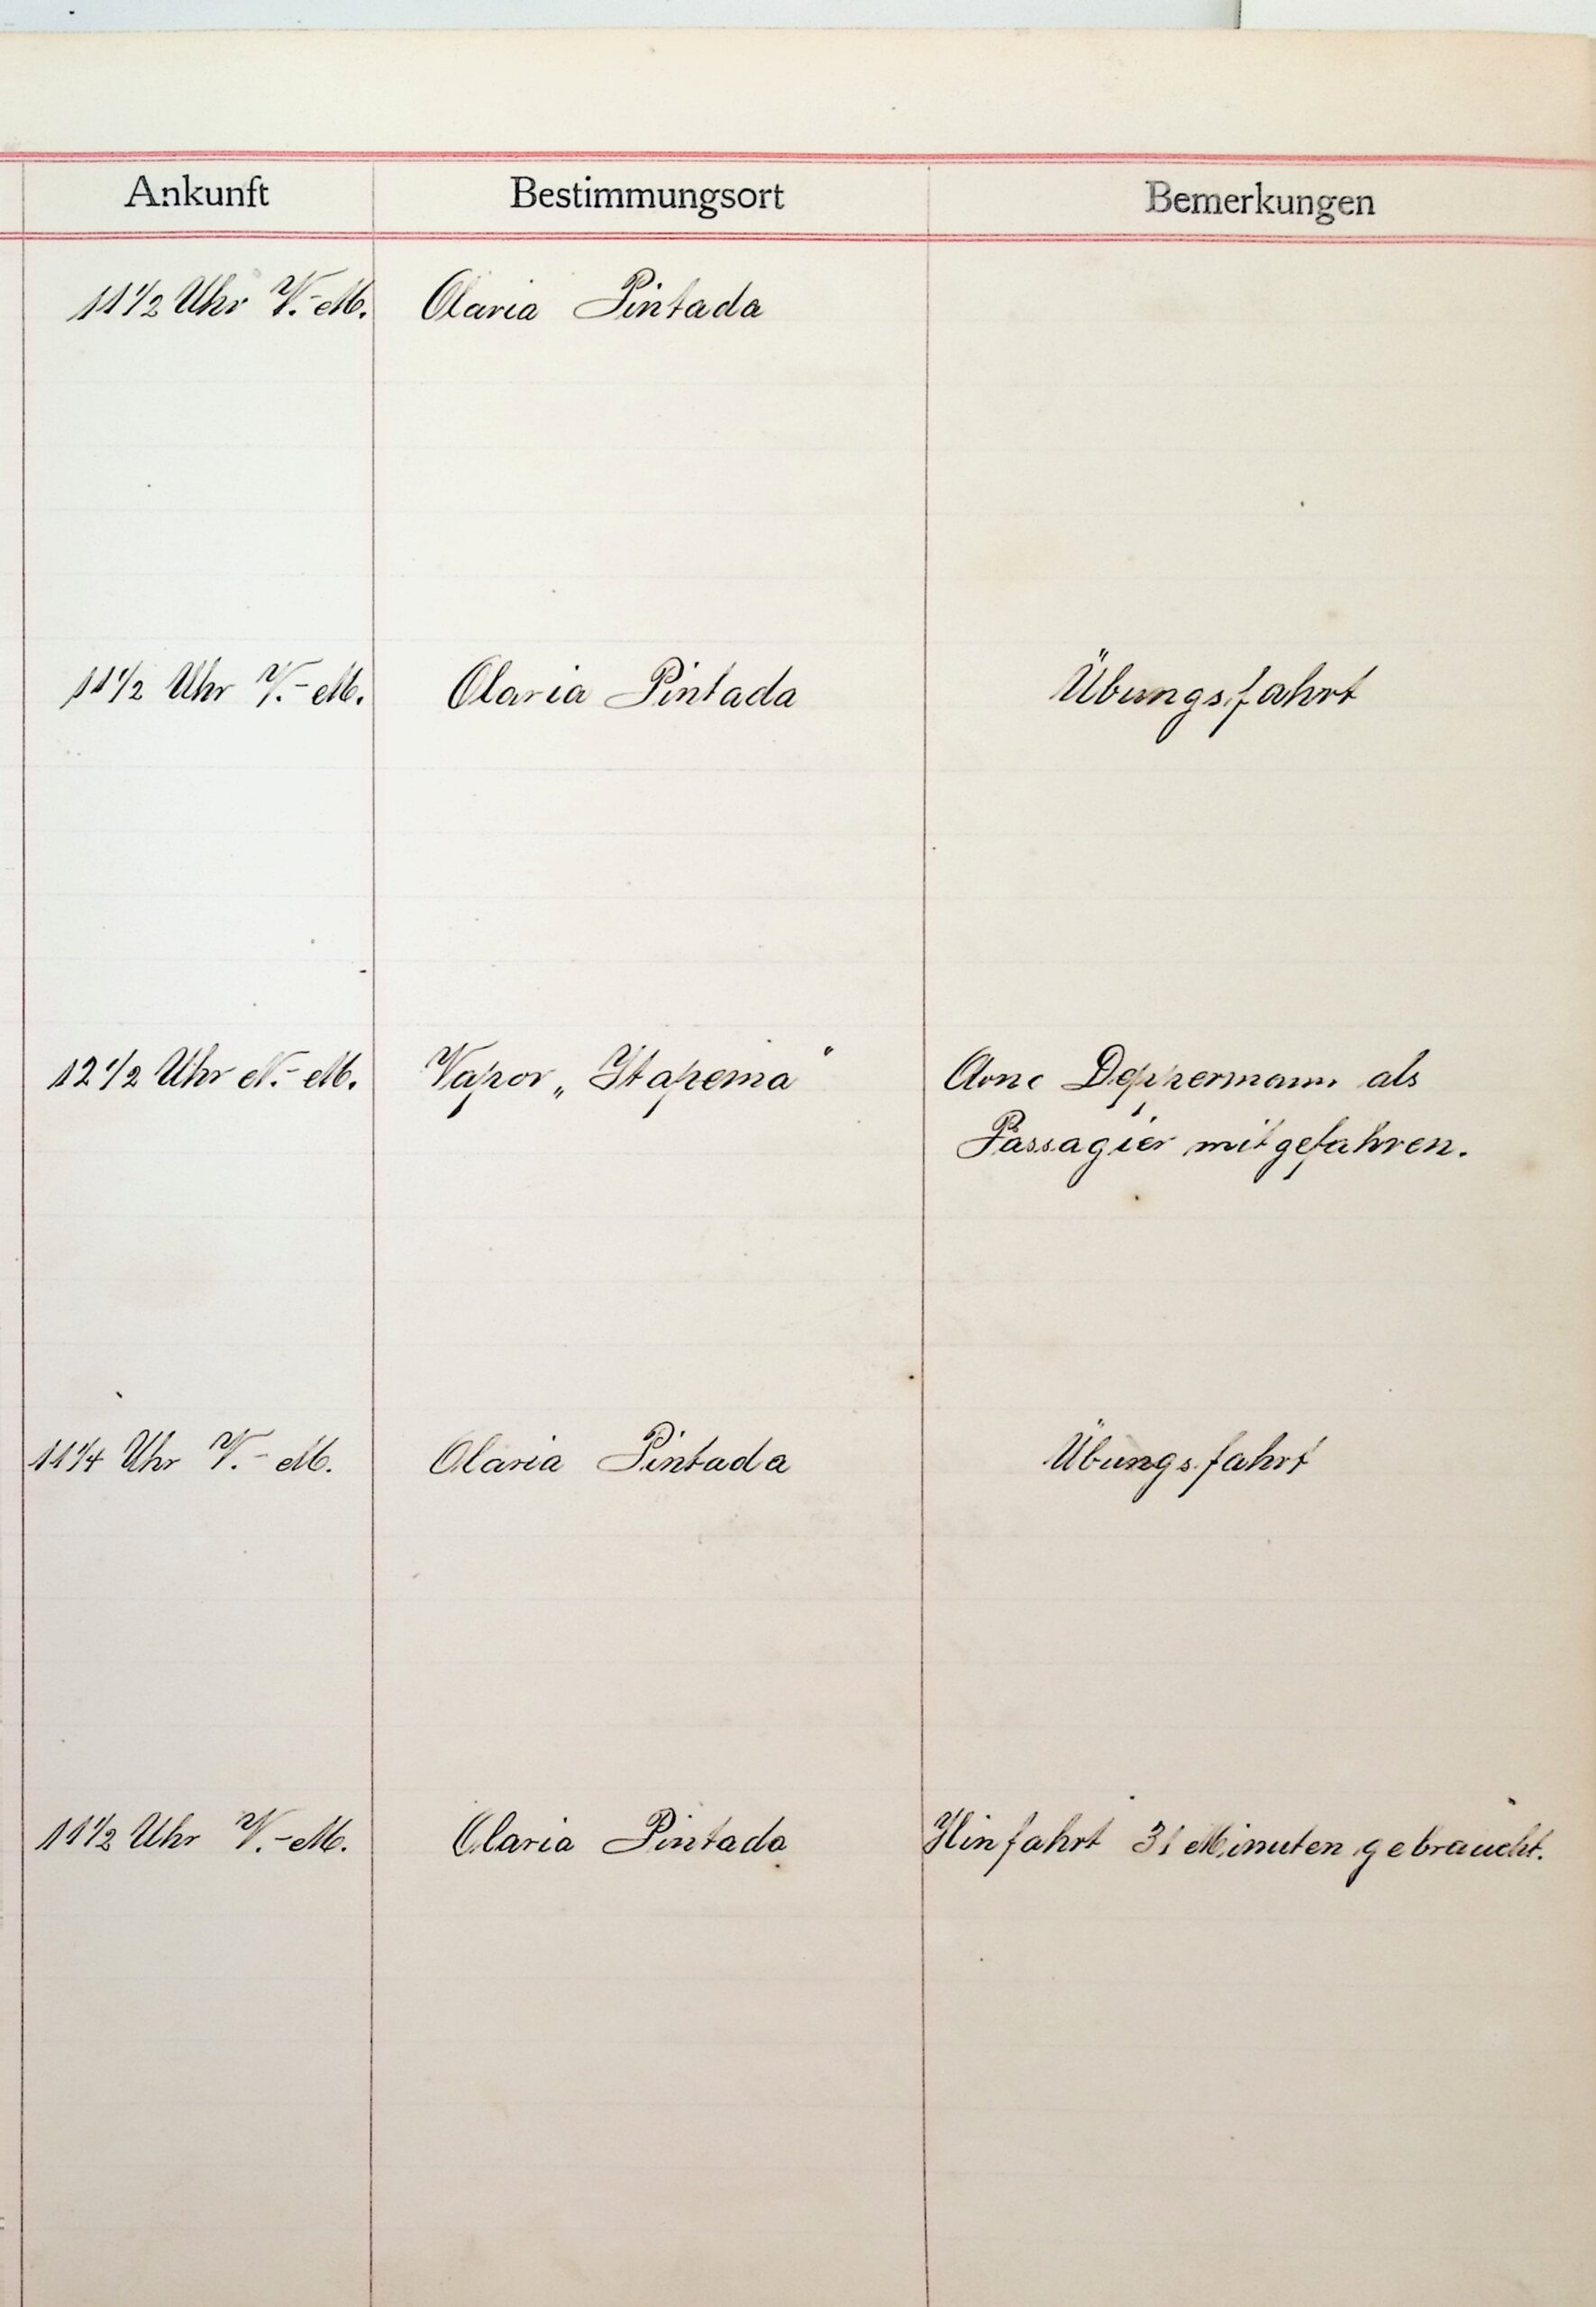 Ankunft Bestimmungsort Bemerkungen
11 1/2 Uhr V.-M. Olaria Pintada
11 1/2 Uhr V.-M. Olaria Pintada Übungsfahrt
12 1/2 Uhr N.-M. Vapor „Itapema“ Arno Deppermann als
Passagier mitgefahren.
11 1/4 Uhr V.-M. Olaria Pintada Übungsfahrt
11 1/2 Uhr V.-M. Olaria Pintada Hinfahrt 31 Minuten gebraucht.